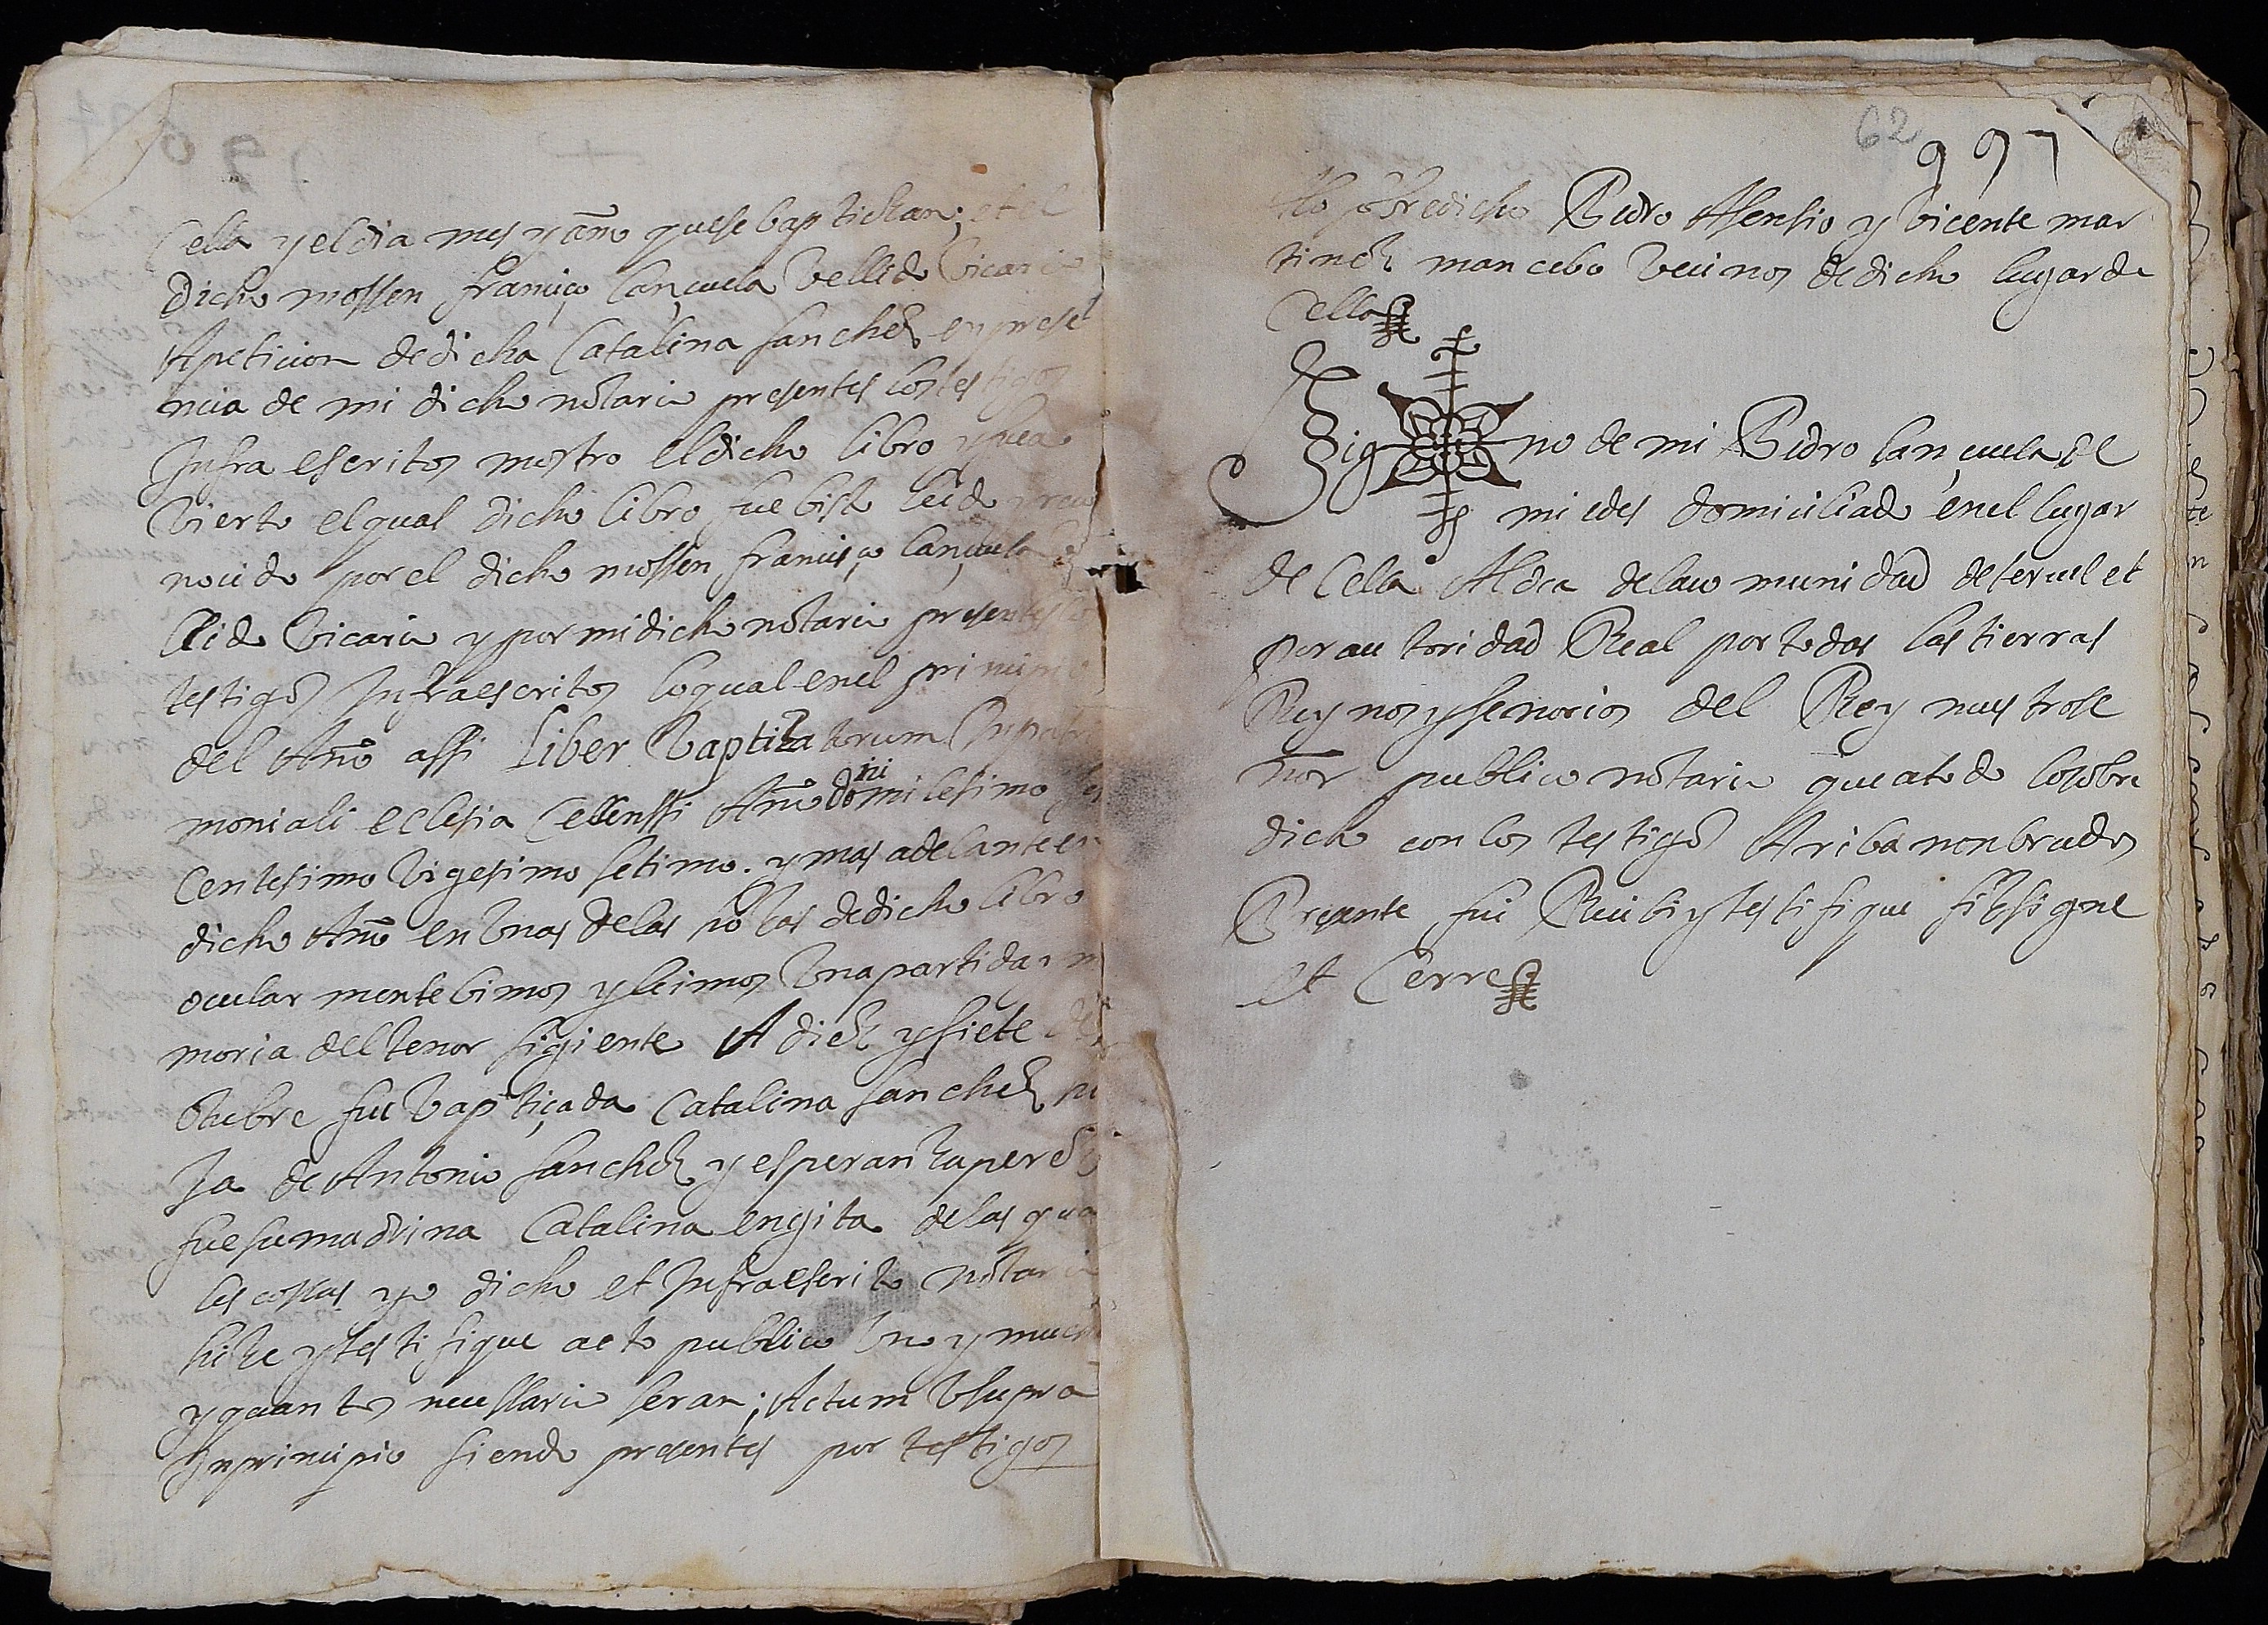 Cella y el dia mes y año que se baptiçan; et el
dicho mossen françisco lançuela Vellido Vicario
A peticion de dicha Catalina sanchez en prese
ncia de mi dicho notario presentes los testigos
Infra escritos mostro el dicho libro y fue a
Vierto el qual dicho libro fue bisto leido y reco
nocido por el dicho mossen françisco lançuela
llido Vicario y por mi dicho notario presentes
testigos Infraescritos lo qual en el principio
del Año assi Liber Vaptizatorum
moniali eclesia Cellenssi Año domini milesimo
Centesimo Vigesimo setimo. y mas adelante en
dicho Año en Vnas de las de dicho libro
ocular mente bimos y leimos Vna partida
moria del tenor sigiente A diez y siete de
Otubre fue Vaptiçada Catalina sanchez
Ja de Antonio sanchez y esperanza
fue su madrina Catalina engita de las qua
les cossas yo dicho et Infraescrito notario
hize y testifique acto publico Vno y muchos
y quantos necessario seran; Actum Vsupra
In principio siendo presentes por testigos
62
997
A lo sobredicho Pedro Asensio y Vicente mar
tinez mancebo Vecinos de dicho lugar de
Cella
Sig no de mi Pedro lançuela de
miedes domiciliado en el lugar
de Cella Aldea de la comunidad de teruel et
por autoridad Real por todas las tierras
Reynos y senorios del Rey nuestro se
ñor publico notario que a todo lo sobre
dicho con los testigos Ariba nonbrados
Presente fui Recibi y testifique signe
et Cerre